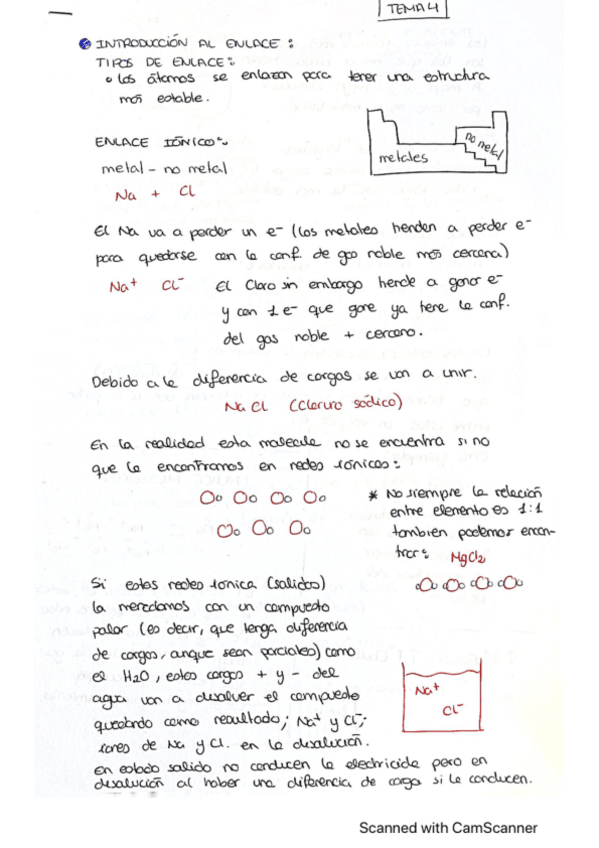 TEMA 4
INTRODUCCIÓN AL ENLACE:
TIPOS DE ENLACE:
• Los átomos se enlazan para tener una estructura
más estable.
ENLACE IÓNICO:
metal – no metal
Na + Cl
metales
no metal
El Na va a perder un e⁻ (los metales tienden a perder e⁻
para quedarse con la conf. de gas noble más cercana)
Na⁺ Cl⁻
El Cloro sin embargo tiende a ganar e⁻
y con 1 e⁻ que gane ya tiene la conf.
del gas noble + cercano.
Debido a la diferencia de cargas se van a unir.
NaCl (Cloruro sódico)
En la realidad esta molecula no se encuentra si no
que la encontramos en redes iónicas:
* No siempre la relación
entre elemento es 1:1
tambien podemos encon-
trar:
MgCl2
Si estas redes ionica (salidas)
la mezclamos con un compuesto
polar (es decir, que tenga diferencia
de cargas, aunque sean parciales) como
el H2O, estas cargas + y - del
agua van a disolver el compuesto
quedando como resultado; Na⁺ y Cl⁻;
iones de Na y Cl. en la disolución.
Na⁺
Cl⁻
En estado salido no conducen la electricidad pero en
disolución al haber una diferencia de carga si la conducen.
Scanned with CamScanner